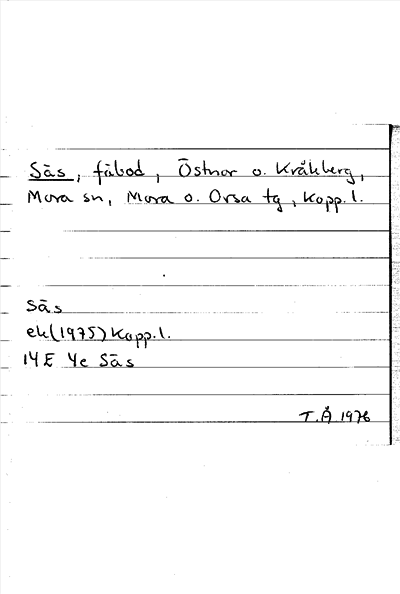 Säs, fäbod, Östnor o. Kråkberg,
Mora sn, Mora o. Orsa tg, Kopp. l.
Säs
ek(1975) Kopp. l.
14E 4e Säs
T.Å 1976